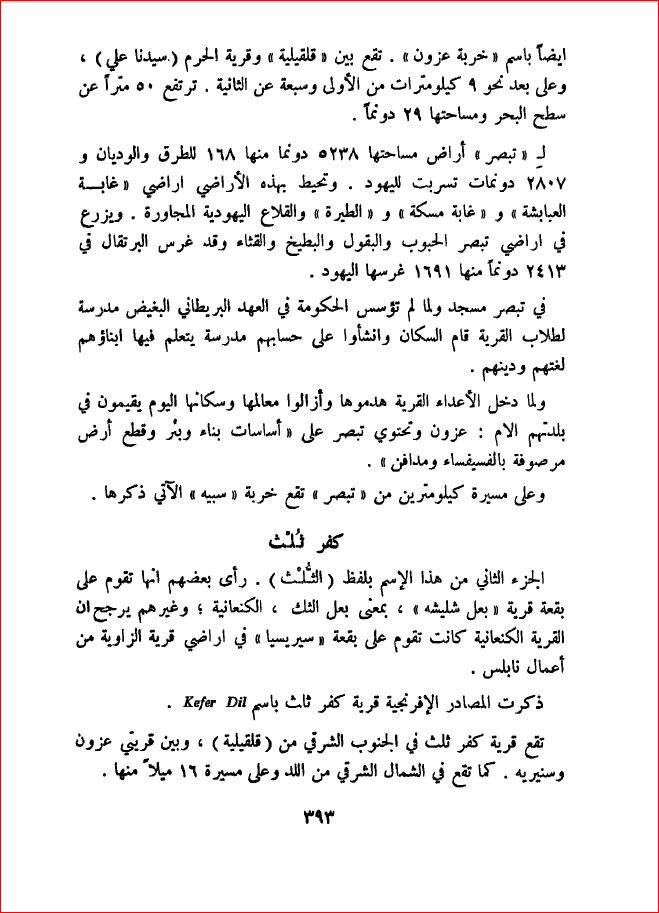 ايضاً باسم « خربة عزون » . تقع بين « قلقيلية » وقرية الحرم ( سيدنا علي ) ،
وعلى بعد نحو ٩ كيلومترات من الأولى وسبعة عن الثانية . ترتفع ٥٠ متراً عن
سطح البحر ومساحتها ٢٩ دونماً .
لِـ « تبصر » أراض مساحتها ٥٢٣٨ دونما منها ١٦٨ للطرق والوديان و
٢٨٠٧ دونمات تسربت لليهود . وتحيط بهذه الأراضي اراضي « غابــة
العبابشة » و « غابة مسكة » و « الطيرة » والقلاع اليهودية المجاورة . ويزرع
في اراضي تبصر الحبوب والبقول والبطيخ والقثاء وقد غرس البرتقال في
٢٤١٣ دونماً منها ١٦٩١ غرسها اليهود .
في تبصر مسجد ولما لم تؤسس الحكومة في العهد البريطاني البغيض مدرسة
لطلاب القرية قام السكان وانشأوا على حسابهم مدرسة يتعلم فيها ابناؤهم
لغتهم ودينهم .
ولما دخل الأعداء القرية هدموها وأزالوا معالمها وسكانها اليوم يقيمون في
بلدتهم الام : عزون وتحتوي تبصر على « أساسات بناء وبئر وقطع أرض
مرصوفة بالفسيفساء ومدافن » .
وعلى مسيرة كيلومترين من « تبصر » تقع خربة « سبيه » الآتي ذكرها .
كفر ثُلْث
الجزء الثاني من هذا الإسم بلفظ ( الثُّلْث ) . رأى بعضهم انها تقوم على
بقعة قرية « بعل شليشه » ، بمعنى بعل الثلث ، الكنعانية ؛ وغيرهم يرجح ان
القرية الكنعانية كانت تقوم على بقعة « سيريسيا » في اراضي قرية الزاوية من
أعمال نابلس .
ذكرت المصادر الإفرنجية قرية كفر ثالث باسم Kefer Dil .
تقع قرية كفر ثلث في الجنوب الشرقي من ( قلقيلية ) ، وبين قريتي عزون
وسنيريه . كما تقع في الشمال الشرقي من اللد وعلى مسيرة ١٦ ميلاً منها .
٣٩٣